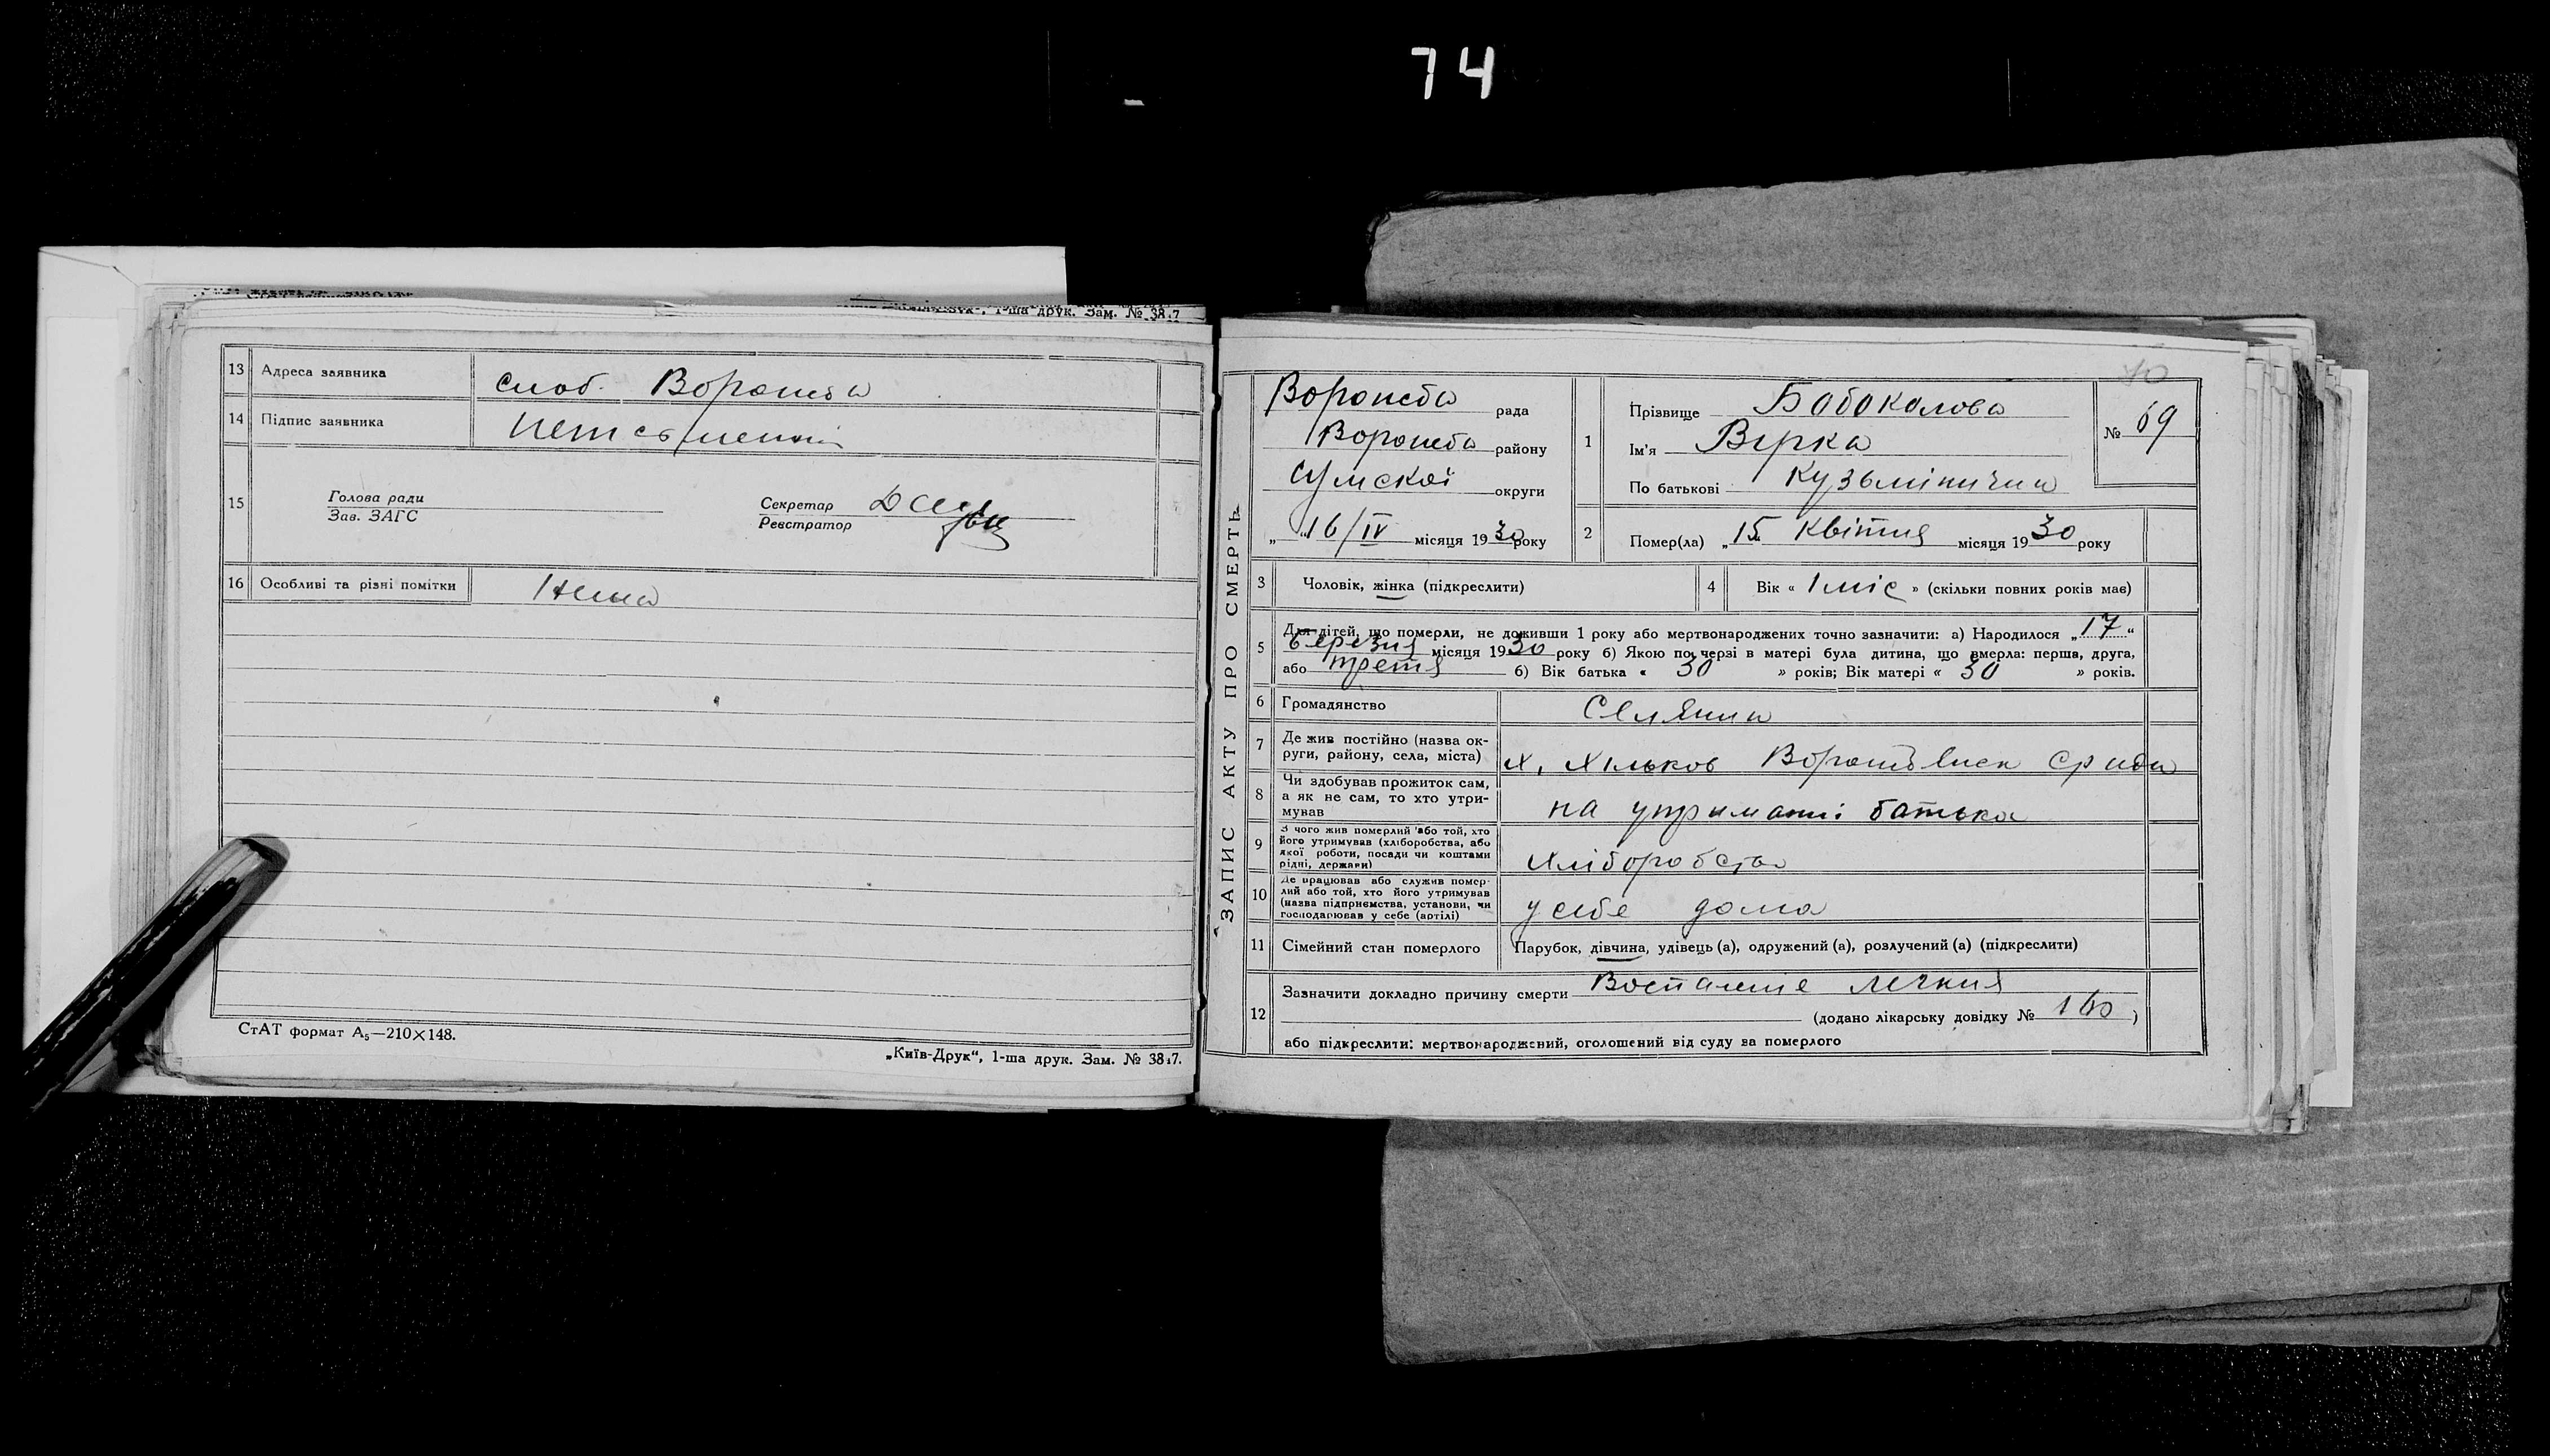 74
1-ша друк. Зам. № 38.7
13 Адреса заявника слоб. Ворожба
14 Підпис заявника неписьменний
15 Голова ради
Зав. ЗАГС
Секретар
Реєстратор
16 Особливі та різні помітки Нема
СтАТ формат А5—210×148.
„Київ-Друк“, 1-ша друк. Зам. № 38.7.
ЗАПИС АКТУ ПРО СМЕРТЬ
70
Ворожба рада
Ворожба району
Сумской округи
„ “ 16/IV місяця 1930 року
1 Прізвище Бабакалова
Ім'я Вірка
По батькові Кузьмінична
№ 69
2 Помер(ла) „15“ Квітня місяця 1930 року
3 Чоловік, жінка (підкреслити)
4 Вік « 1 міс » (скільки повних років має)
5 Для дітей, що померли, не доживши 1 року або мертвонароджених точно зазначити: а) Народилося „17“
березня місяця 1930 року б) Якою по черзі в матері була дитина, що вмерла: перша, друга,
або третя б) Вік батька « 30 » років; Вік матері « 30 » років.
6 Громадянство Селянин
7 Де жив постійно (назва округи, району, села, міста) х. Хильков
8 Чи здобував прожиток сам,
а як не сам, то хто утримував на утриманні батька
9 З чого жив померлий або той, хто
його утримував (хліборобства, або
якої роботи, посади чи коштами
рідні, держави) хліборобства
10 Де працював або служив померлий або той, хто його утримував
(назва підприємства, установи, чи
господарював у себе (артілі) у себе дома
11 Сімейний стан померлого Парубок, дівчина, удівець (а), одружений (а), розлучений (а) (підкреслити)
12 Зазначити докладно причину смерти Воспаление легких
(додано лікарську довідку № 160 )
або підкреслити: мертвонароджений, оголошений від суду за померлого